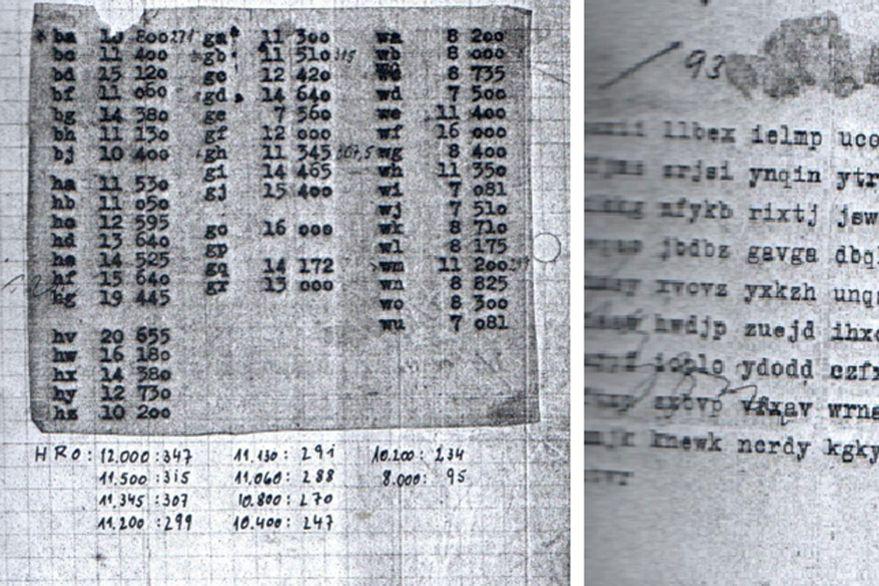 ba 10 800 271 ga 11 300 wa 8 200
bc 11 400 gb 11 510 315 wb 8 000
bd 15 120 gc 12 420 8 735
bf 11 060 gd 14 640 wd 7 500
bg 14 380 ge 7 560 we 11 400
bh 11 130 gf 12 000 wf 16 000
bj 10 400 gh 11 345 307,5 wg 8 400
gi 14 465 wh 11 350
ha 11 530 gj 15 400 wi 7 081
hb 11 050 wj 7 510
hc 12 595 go 16 000 wk 8 710
hd 13 640 gp wl 8 175
he 14 525 gq 14 172 wm 11 200
hf 15 640 gr 13 000 wn 8 825
hg 19 445 wo 8 300
wu 7 081
hv 20 655
hw 16 180
hx 14 380
hy 12 730
hz 10 200
HRO: 12.000:347 11.130: 291 10.200: 234
11.500:315 11.060: 288 8.000: 95
11.345:307 10.800: 270
11.200:299 10.400: 247
93
llbex ielmp uco
srjsi ynqin ytr
nfykb rixtj jsw
jbdbz gavga dbql
xvovz yxkzh unq
hwdjp zuejd ihx
ioplo ydodd czfx
vfxqv wrna
knewk ncrdy kgky